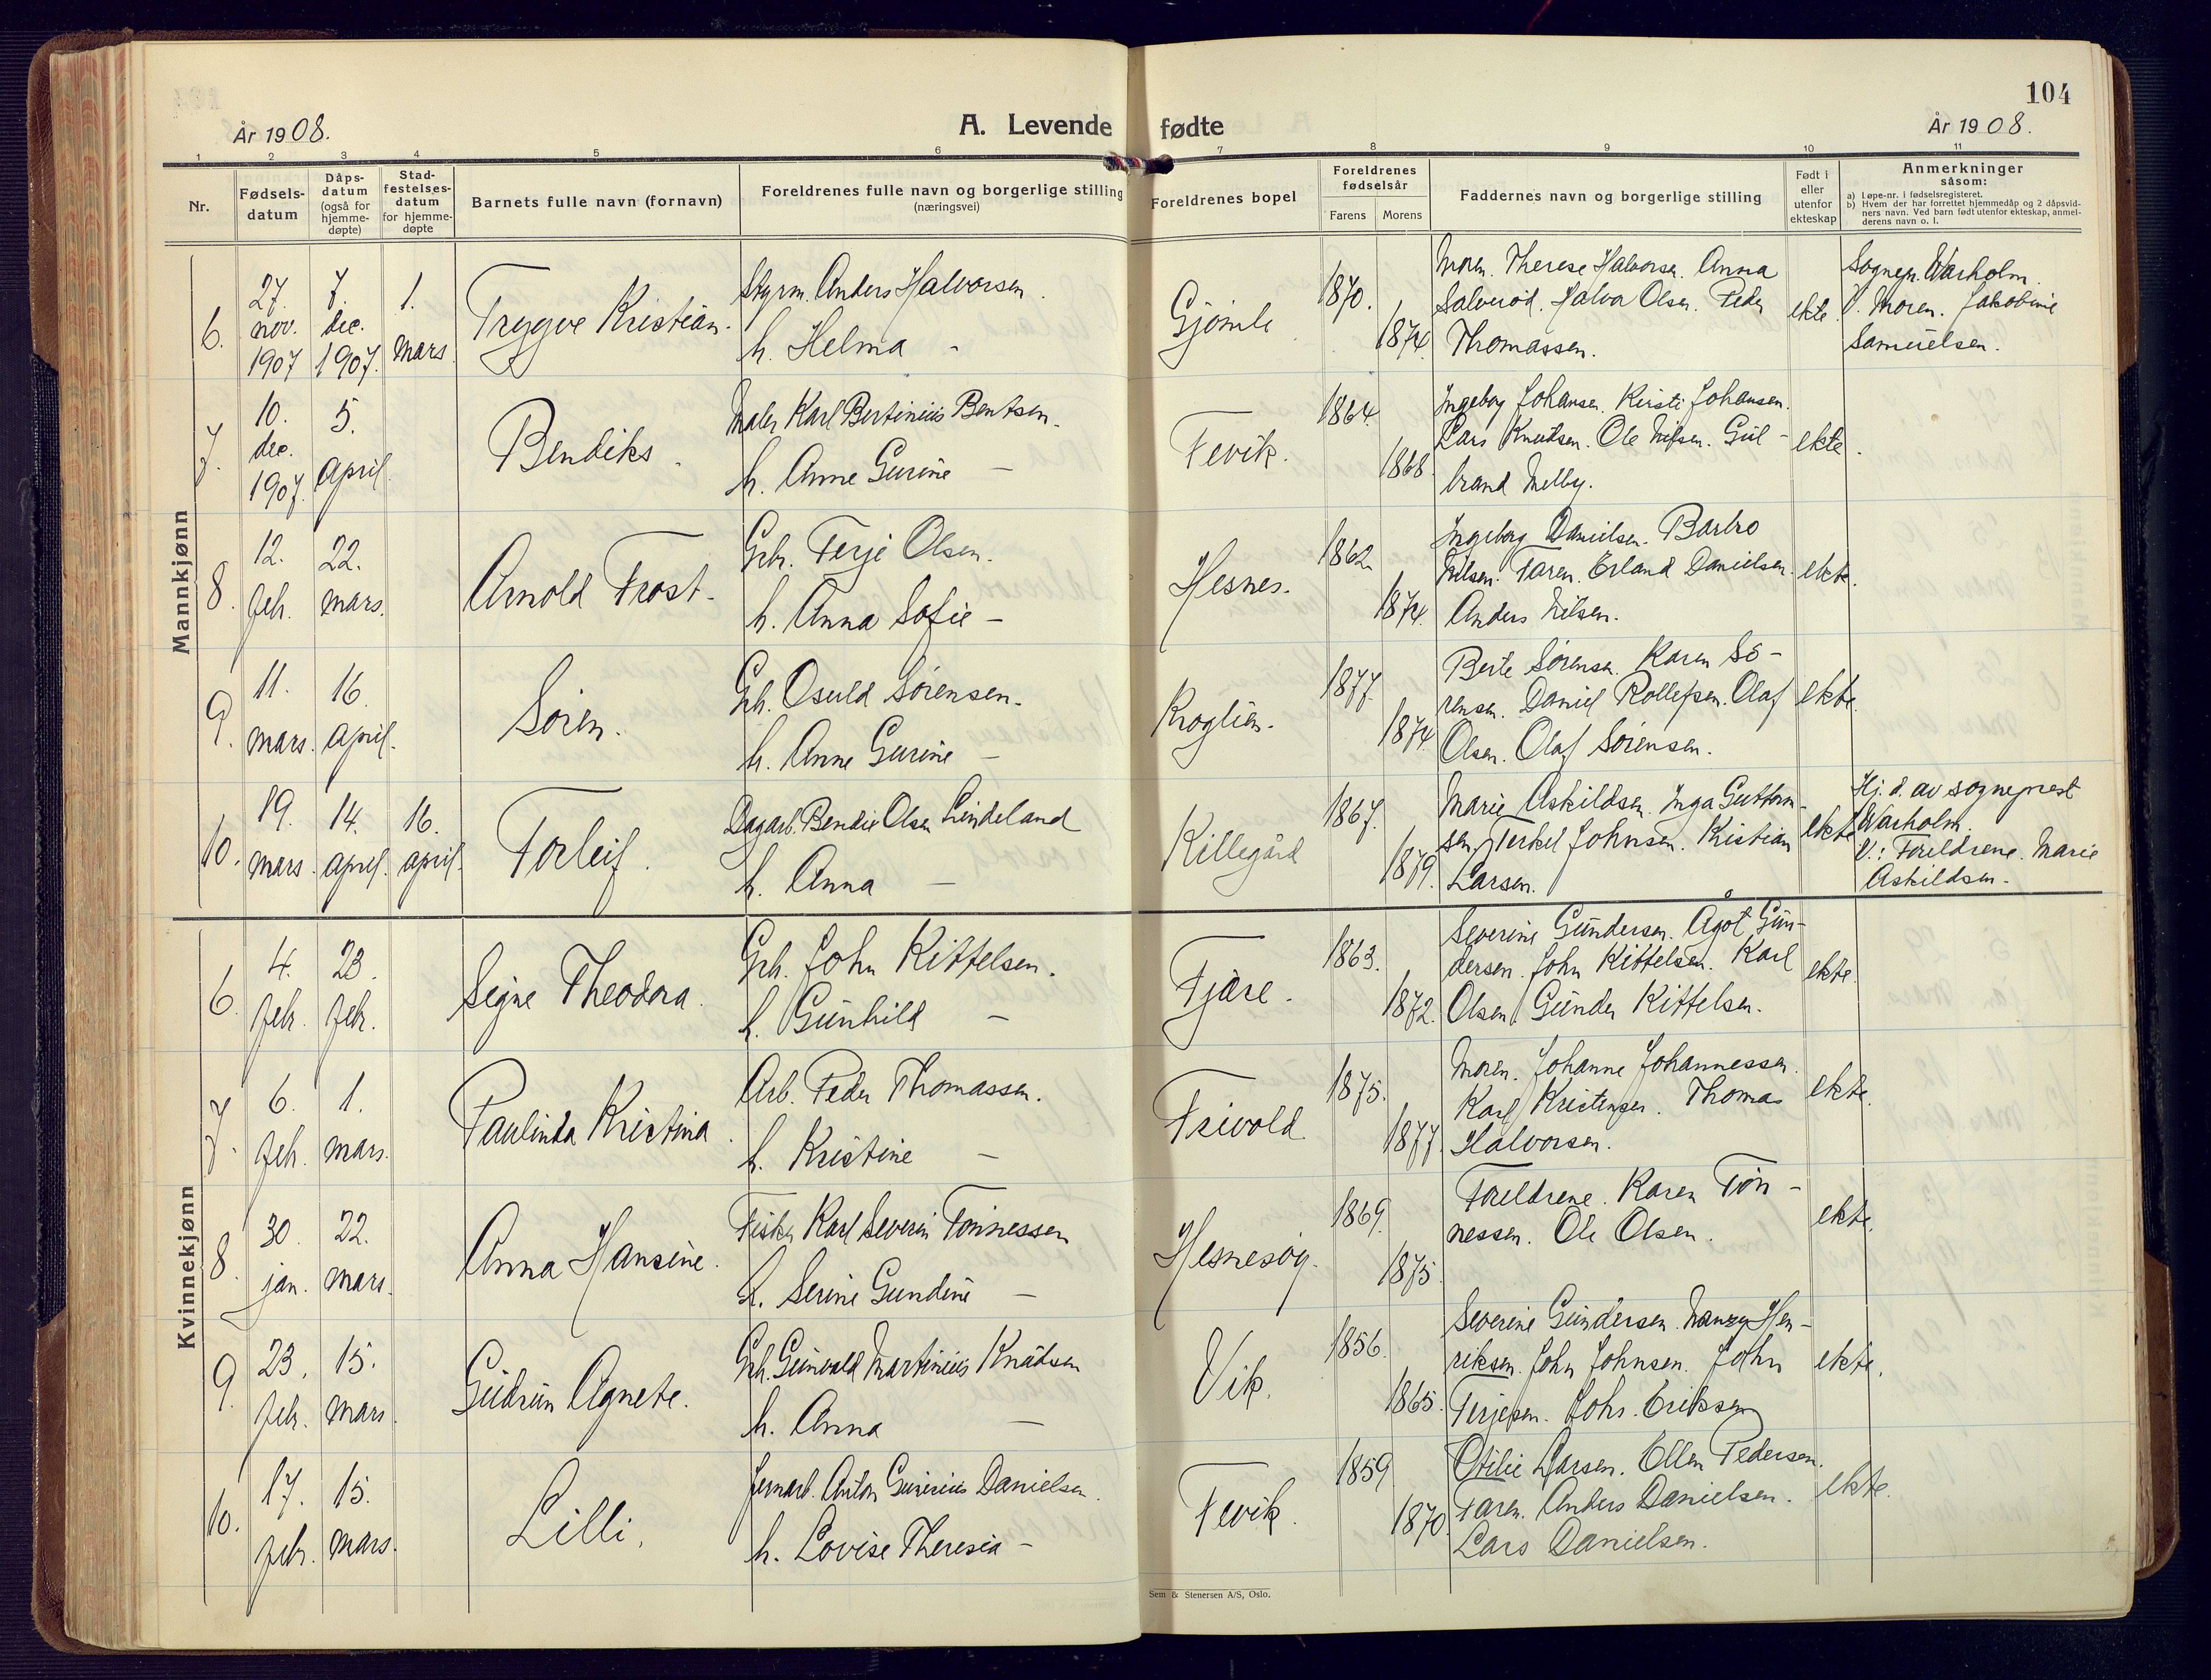 104
År 1908.
A. Levende fødte
År 1908.
1 2 3 4 5 6 7 8 9 10 11
Nr.
Fødselsdatum
Dåpsdatum (også for hjemmedøpte)
Stadfestelsesdatum for hjemmedøpte
Barnets fulle navn (fornavn)
Foreldrenes fulle navn og borgerlige stilling
(næringsvei)
Foreldrenes bopel
Foreldrenes fødselsår
Farens Morens
Faddernes navn og borgerlige stilling
Født i eller utenfor ekteskap
Anmerkninger
såsom:
a) Løpe-nr. i fødselsregisteret.
b) Hvem der har forrettet hjemmedåp og 2 dåpsvidners navn. Ved barn født utenfor ekteskap, anmelderens navn o. l.
Mannkjønn
6. 27. nov. 1907 7. dec. 1907. 1. mars.
Trygve Kristian.
Styrm. Anders Halvorsen.
h. Helma -
Gjømle
1870. 1874.
Moren. Therese Halvorsen. Anna
Salverød. Halvor Olsen. Peder
Thomassen.
ekte.
Sognepr. Warholm.
V. Moren. Jakobine
Samuelsen.
7. 10. dec. 1907. 5. april.
Bendiks.
Maler Karl Bertinius Bentsen.
h. Anne Gurine -
Fevik.
1864. 1868.
Ingeborg Johansen. Kirsti Johansen.
Lars Knudsen. Ole Nilsen. Gul-
brand Melby.
ekte.
8. 12. feb. 22. mars.
Arnold Frost.
Grb. Terje Olsen.
h. Anna Sofie -
Hesnes.
1862. 1874.
Ingeborg Danielsen. Barbro
Nilsen. Faren. Erland Danielsen.
Anders Nilsen.
ekte.
9. 11. mars. 16. april.
Søren.
Grb. Osuld Sørensen.
h. Anne Gurine -
Kroglien.
1877 1874
Berte Sørensen. Karen Sø-
rensen. Daniel Rollefsen. Olaf
Olsen. Olaf Sørensen.
ekte.
10. 19. mars. 14. april. 16. april.
Torleif.
Dagarb. Bendix Olsen Lindeland
h. Anna -
Killegård
1867. 1879.
Marie Askildsen. Inga Guttorm-
sen. Terkel Johnsen. Kistian
Larsen.
ekte
Hj. d. av sogneprest
Warholm.
V.: Foreldrene. Marie
Askildsen.
Kvinnekjønn
6. 4. feb. 23. feb.
Signe Theodora.
Grb. John Kittelsen.
h. Gunhild -
Fjære.
1863. 1872.
Severine Gundersen. Ågot Gun-
dersen. John Kittelsen. Karl
Olsen. Gunder Kittelsen.
ekte.
7. 6. feb. 1. mars.
Paulinda Kristina.
Arb. Peder Thomassen.
h. Kristine -
Frivold
1875. 1877.
Moren. Johanne Johannessen.
Karl Kristensen. Thomas
Halvorsen.
ekte.
8. 30. jan. 22. mars.
Anna Hansine.
Fisker Karl Severin Tønnessen
h. Serine Gundine -
Hesnesøy.
1869. 1875.
Foreldrene. Karen Tøn-
nessen. Ole Olsen.
ekte.
9. 23. feb. 15. mars.
Gudrun Agnete.
Grb. Gunvald Martinius Knudsen
h. Anna -
Vik.
1856. 1865.
Severine Gundersen. Nanzy Hen-
riksen. John Johnsen. John
Terjesen. Johs. Eriksen
ekte.
10. 17. feb. 15. mars.
Lilli.
Jernarb. Anton Danielsen.
h. Lovise Theresia -
Fevik.
1859 1870.
Otilie Larsen. Ellen Pedersen.
Faren. Anders Danielsen.
Lars Danielsen.
ekte.
Sem & Stenersen A/S, Oslo.